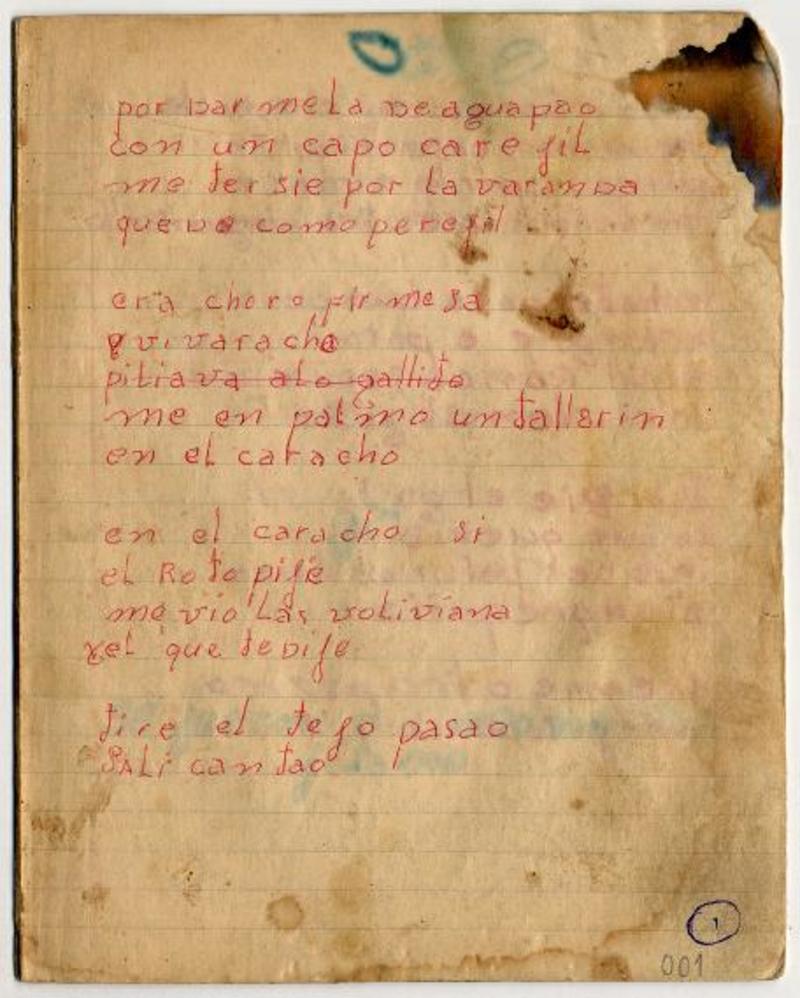 por Dar me La De aguapao
con un capo care jiL
me ter sie por La varanDa
que De como perejil
era choro fir me sa
qvivaracho
pitiava alo gallito
me en palmo untallarin
en el caracho
en el caracho si
el Roto pije
me vio Las voliviana
yel que teDije
tire el tejo pasao
SALi can tao
1
001